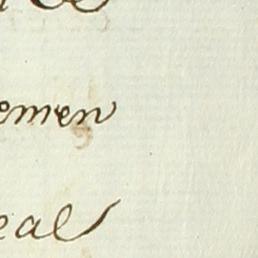 emen
eal